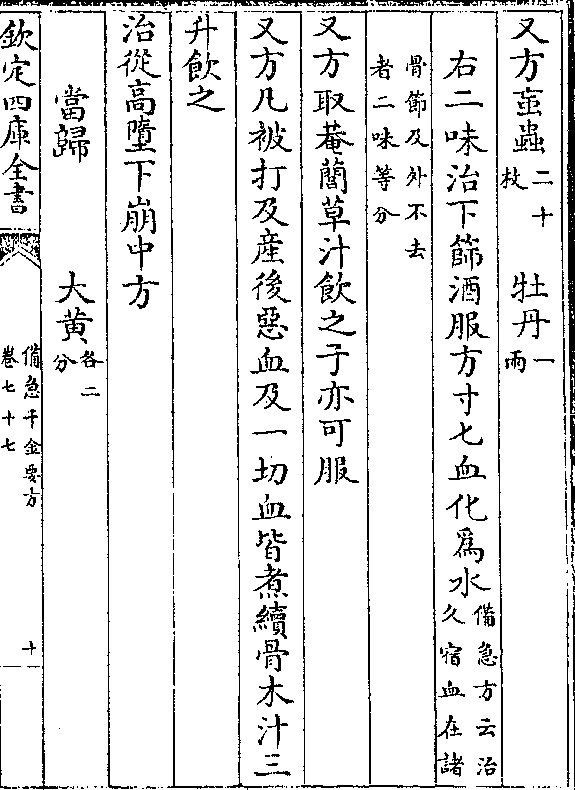 又方䖟蟲二十枚 牡丹一兩
右二味治下篩酒服方寸七血化爲水備急方云治久宿血在諸
骨節及外不去者二味等分
又方取菴䕡草汁飲之子亦可服
又方凡被打及産後惡血及一切血皆煮續骨木汁三
升飲之
治從高墮下崩中方
當歸 大黄各二分
欽定四庫全書 備急千金要方 卷七十七 十